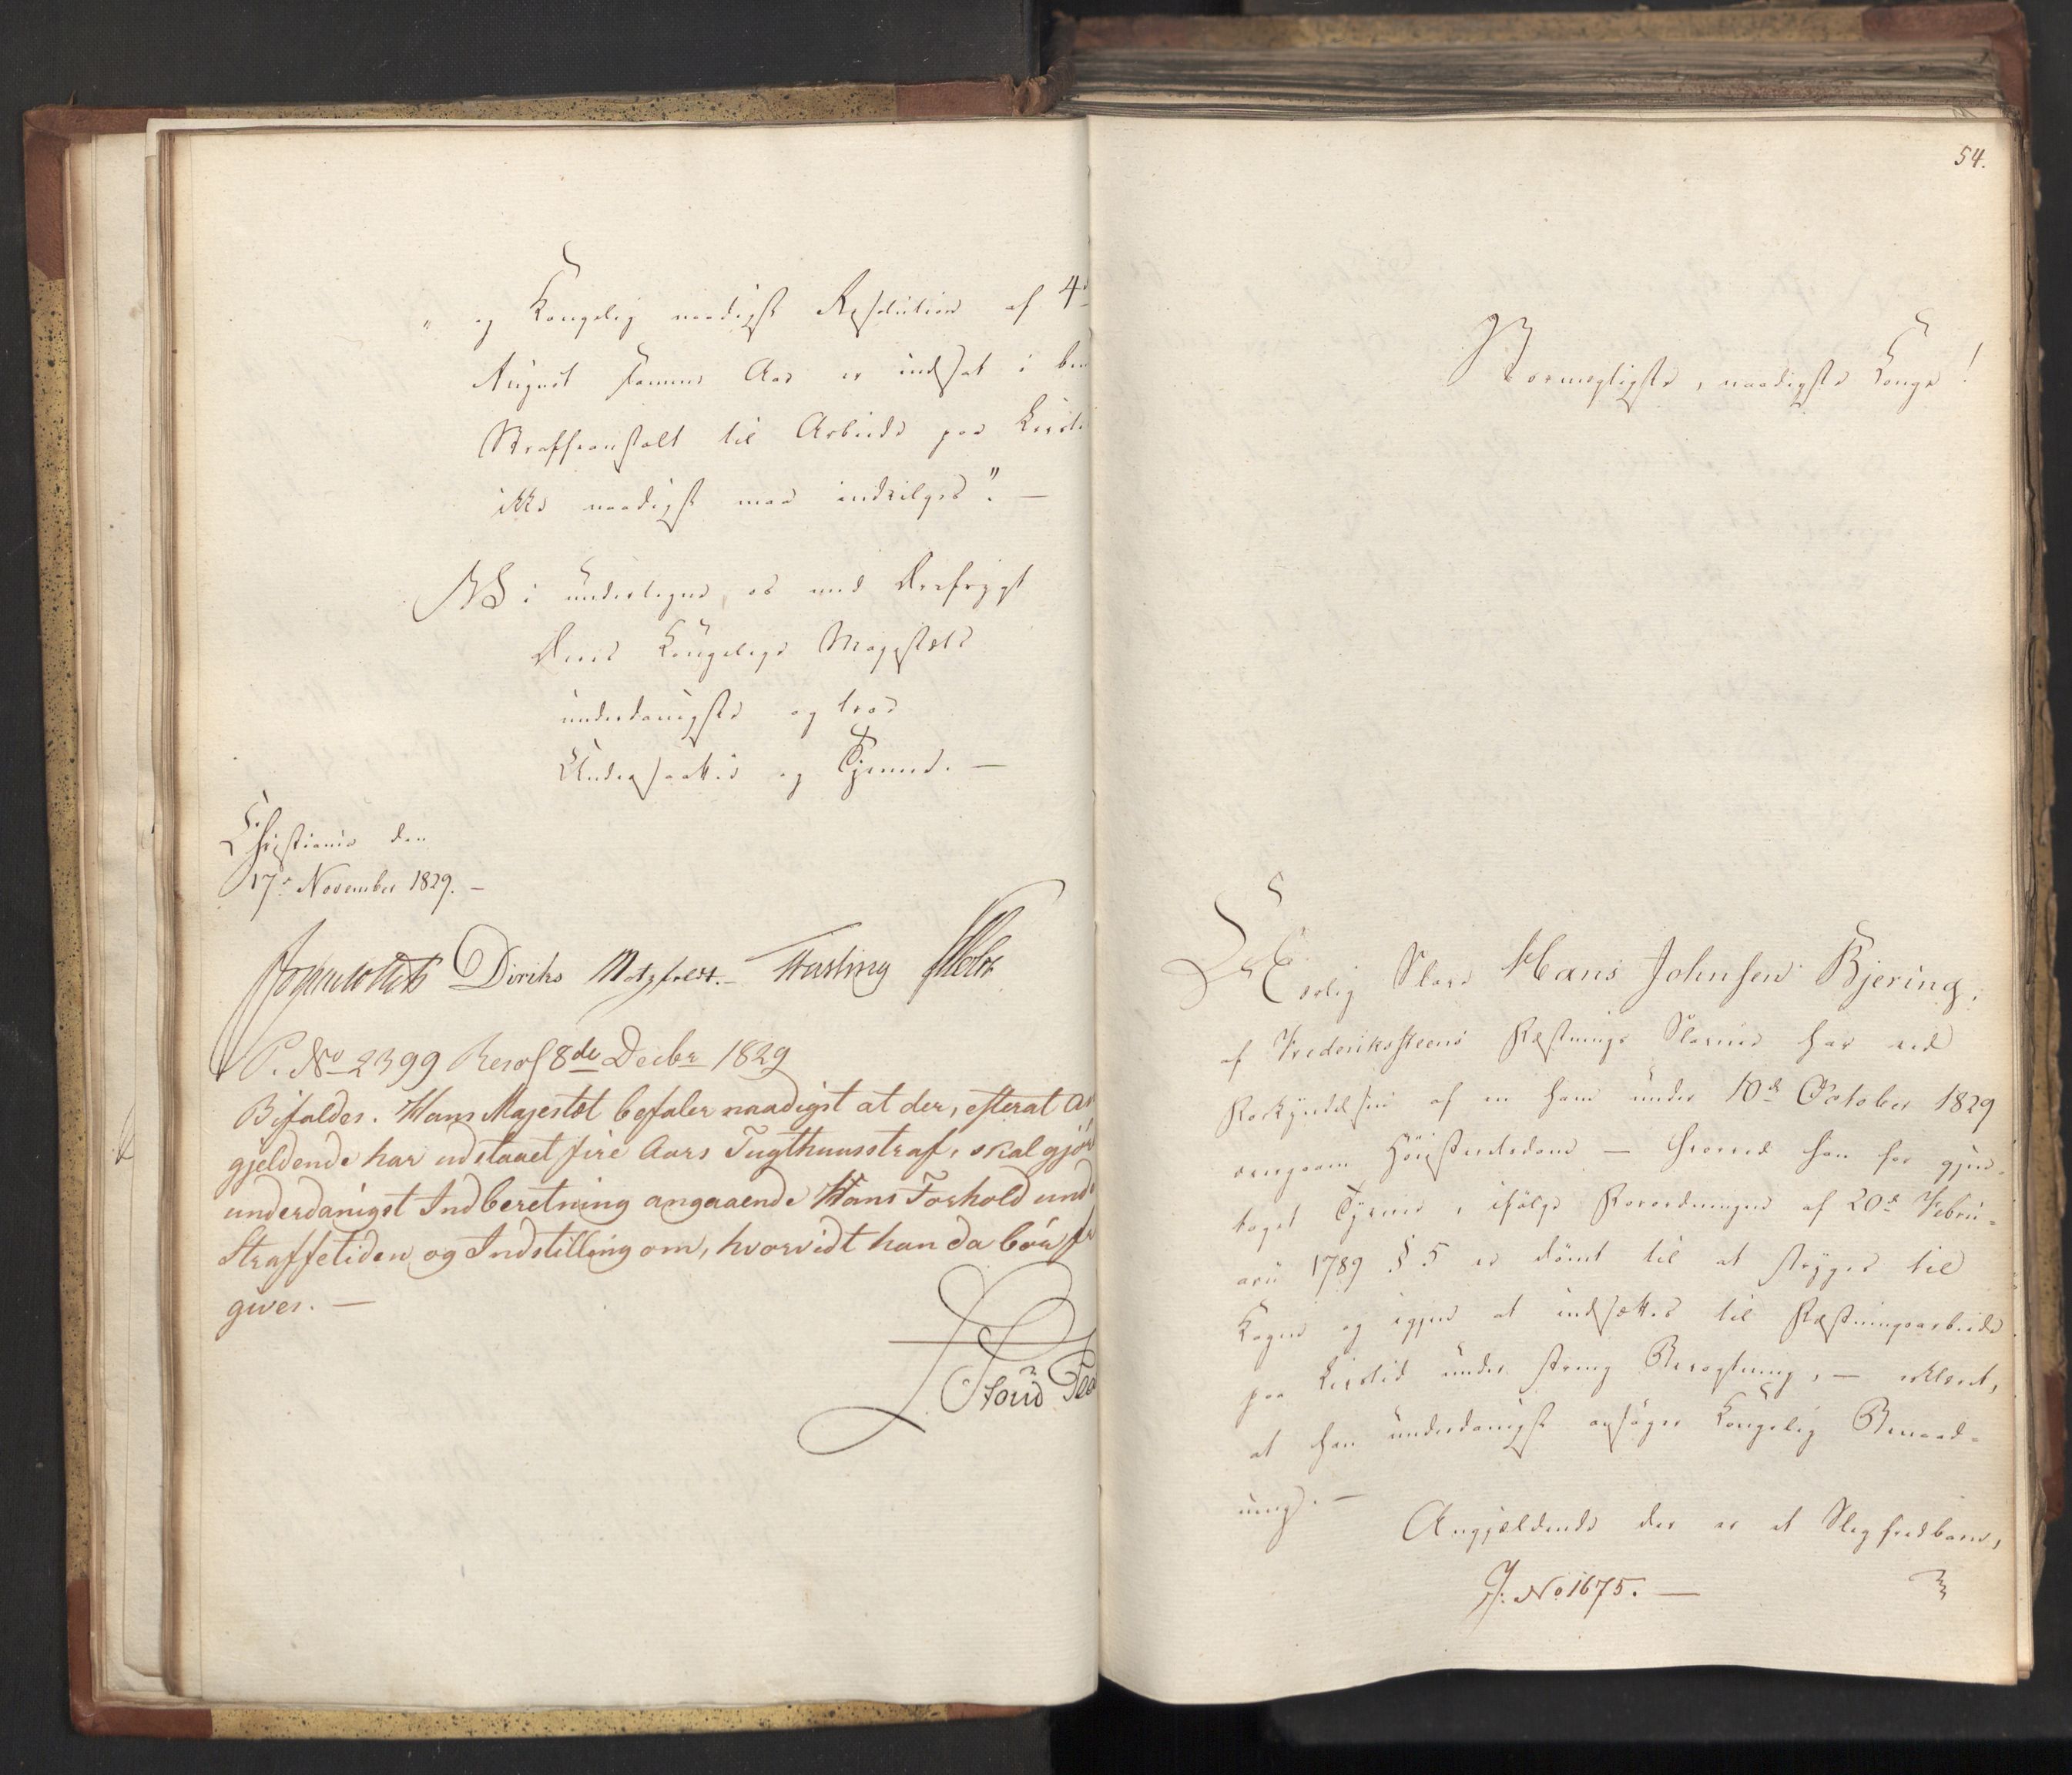 " og Kongelig naadigst Resolution af 4de
August samme Aar er indsat i be
Straffeanstalt til Arbeide paa Livsti
ikke naadigst maa indvilges". —
Vi undertegne os med Ærefrygt
Deres Kongelige Majestæts
underdanigste og troe
Undersaatter og Tjenere. —
Christiania den
17de November 1829. —
Diriks Motzfeldt. Fasting
P. No 2399 Resol 8de Decbr 1829
Bifaldes. Hans Majestæt befaler naadigst at der, efterat An
gjeldende har udstaaet fire Aars Tugthuusstraf, skal gjör
underdanigst Indberetning angaaende Hans Forhold unde
Straffetiden og Indstilling om, hvorvidt han da bör
gives. —
54.
Stormægtigste, naadigste Konge!
Ærlig Slave Hans Johnsen Bjering,
af Frederikssteens Fæstnings Slaverie har ved
Forkyndelsen af en ham under 10de October 1829
overgaaen Höiesteretsdom — hvorved han for gjen-
taget Tyverie, ifølge Forordningen af 20de Febru-
arii 1789 § 5 er dömt til at stryges til
Kagen og igjen at indsættes til Fæstningsarbeide
paa Livstid under streng Bevogtning, — erklæret,
at han underdanigst ansöger Kongelig Benaad-
ning. —
Angjældende der er et Slegfredbarn,
J: No 1675. —